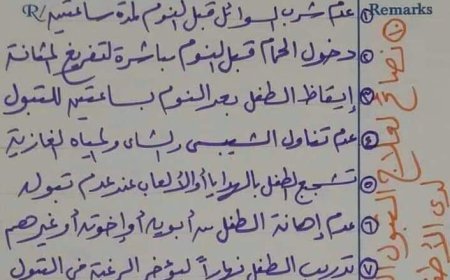 R/ Remarks
① عدم شرب السوائل قبل النوم لمدة ساعتين
② دخول الحمام قبل النوم مباشرة لتفريغ المثانة
③ إيقاظ الطفل بعد النوم بساعتين للتبول
④ عدم تناول الشيبسى والشاى والمياه الغازية
⑤ تشجيع الطفل بالهدايا أو الألعاب عند عدم تبوله
⑥ عدم إهانة الطفل من أبويه أو إخوته أو غيرهم
⑦ تدريب الطفل نهاراً ليؤخر الرغبة فى التبول
١٠ نصائح لعلاج التبول
لدى الأطفال